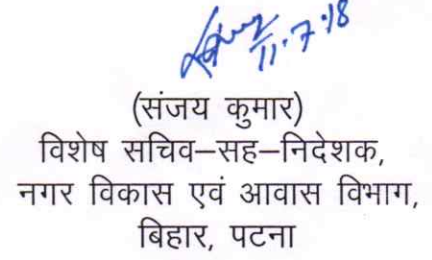 11.7.18
(संजय कुमार)
विशेष सचिव–सह–निदेशक,
नगर विकास एवं आवास विभाग,
बिहार, पटना